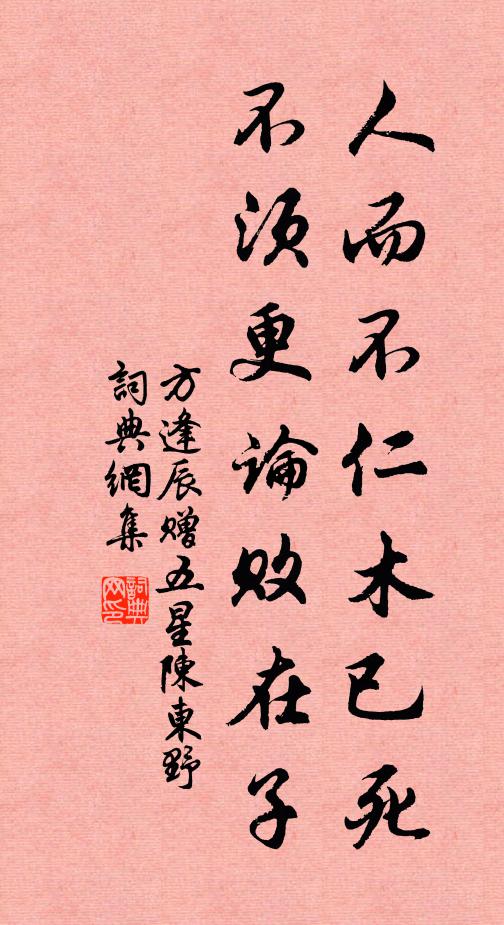 人而不仁木已死
不须更論敗在子
方逢辰贈五星陳東野
詞典網集
詞典
网印